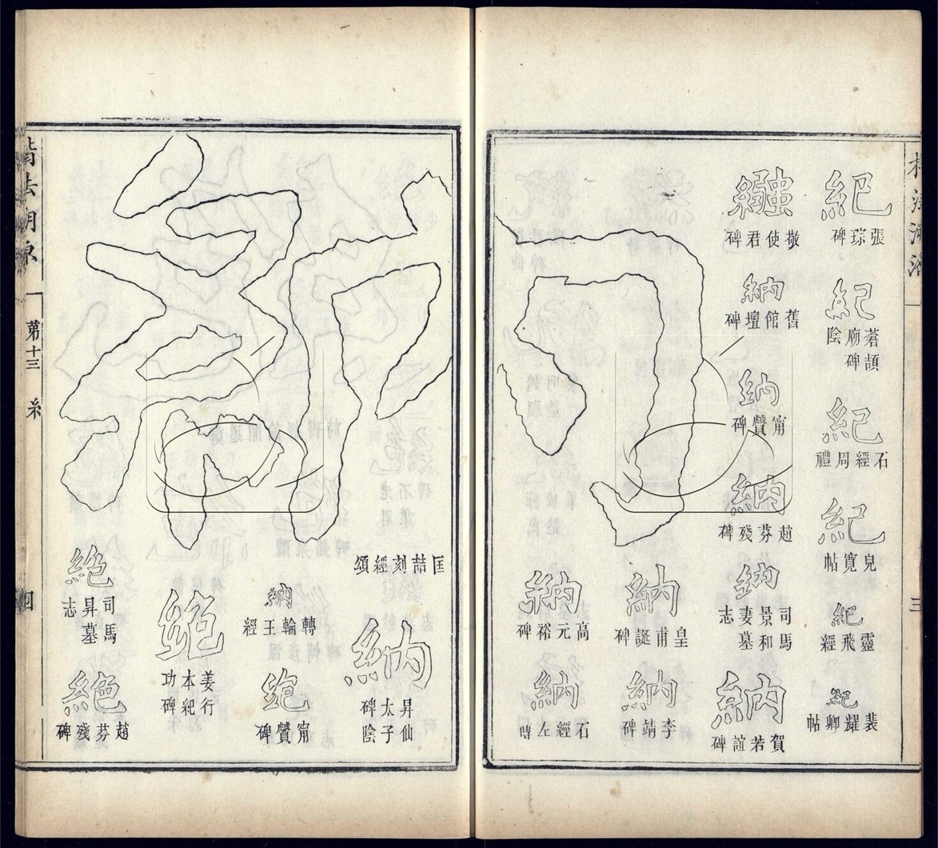 紀
張琮碑
紀
蒼頡廟碑陰
紀
石經周禮
紀
兒寬帖
紀
靈飛經
紀
裴耀卿帖
繦
敬使君碑
納
舊館壇碑
納
甯贙碑
納
趙芬殘碑
納
司馬景和妻墓志
納
賀若誼碑
納
皇甫誕碑
納
李靖碑
納
高元裕碑
納
石經左傳
納
匡喆刻經頌
納
昇仙太子碑陰
納
轉輪王經
絕
甯贙碑
絕
姜行本紀功碑
絕
司馬昇墓志
絕
趙芬殘碑
楷法溯源
第十三
糸
四